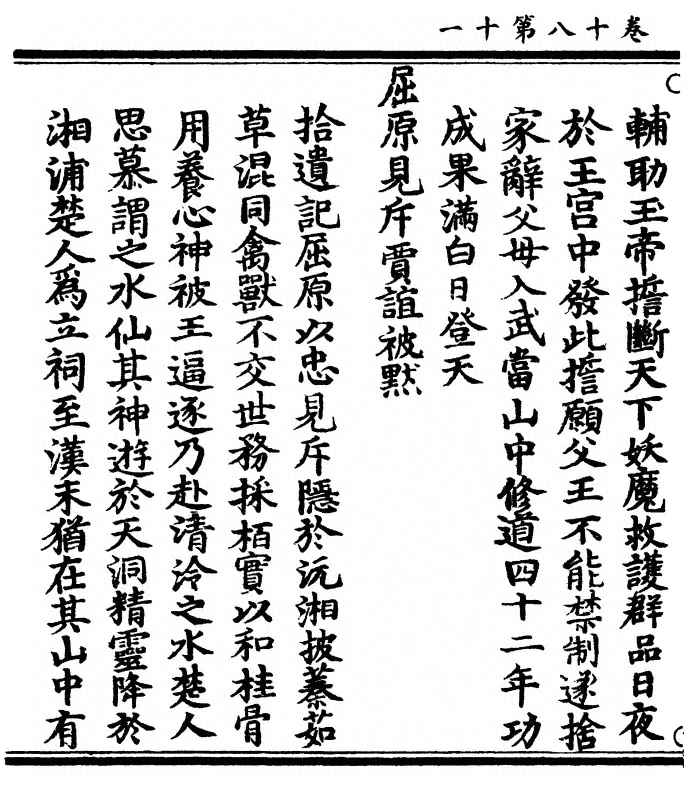 卷十八第十一
輔助玉帝㨮斷天下妖魔救護群品日夜
於王宫中發此㨮願父王不能禁制遂捨
家辭父母入武當山中修道四十二年功
成果滿白日登天
屈原見斥賈誼被黙
拾遺記屈原以忠見斥隱於沅湘披蓁茹
草混同禽獸不交世務採栢實以和桂骨
用養心神被王逼逐乃赴清泠之水楚人
思慕謂之水仙其神遊於天洞精靈降於
湘浦楚人爲立祠至漢末猶在其山中有